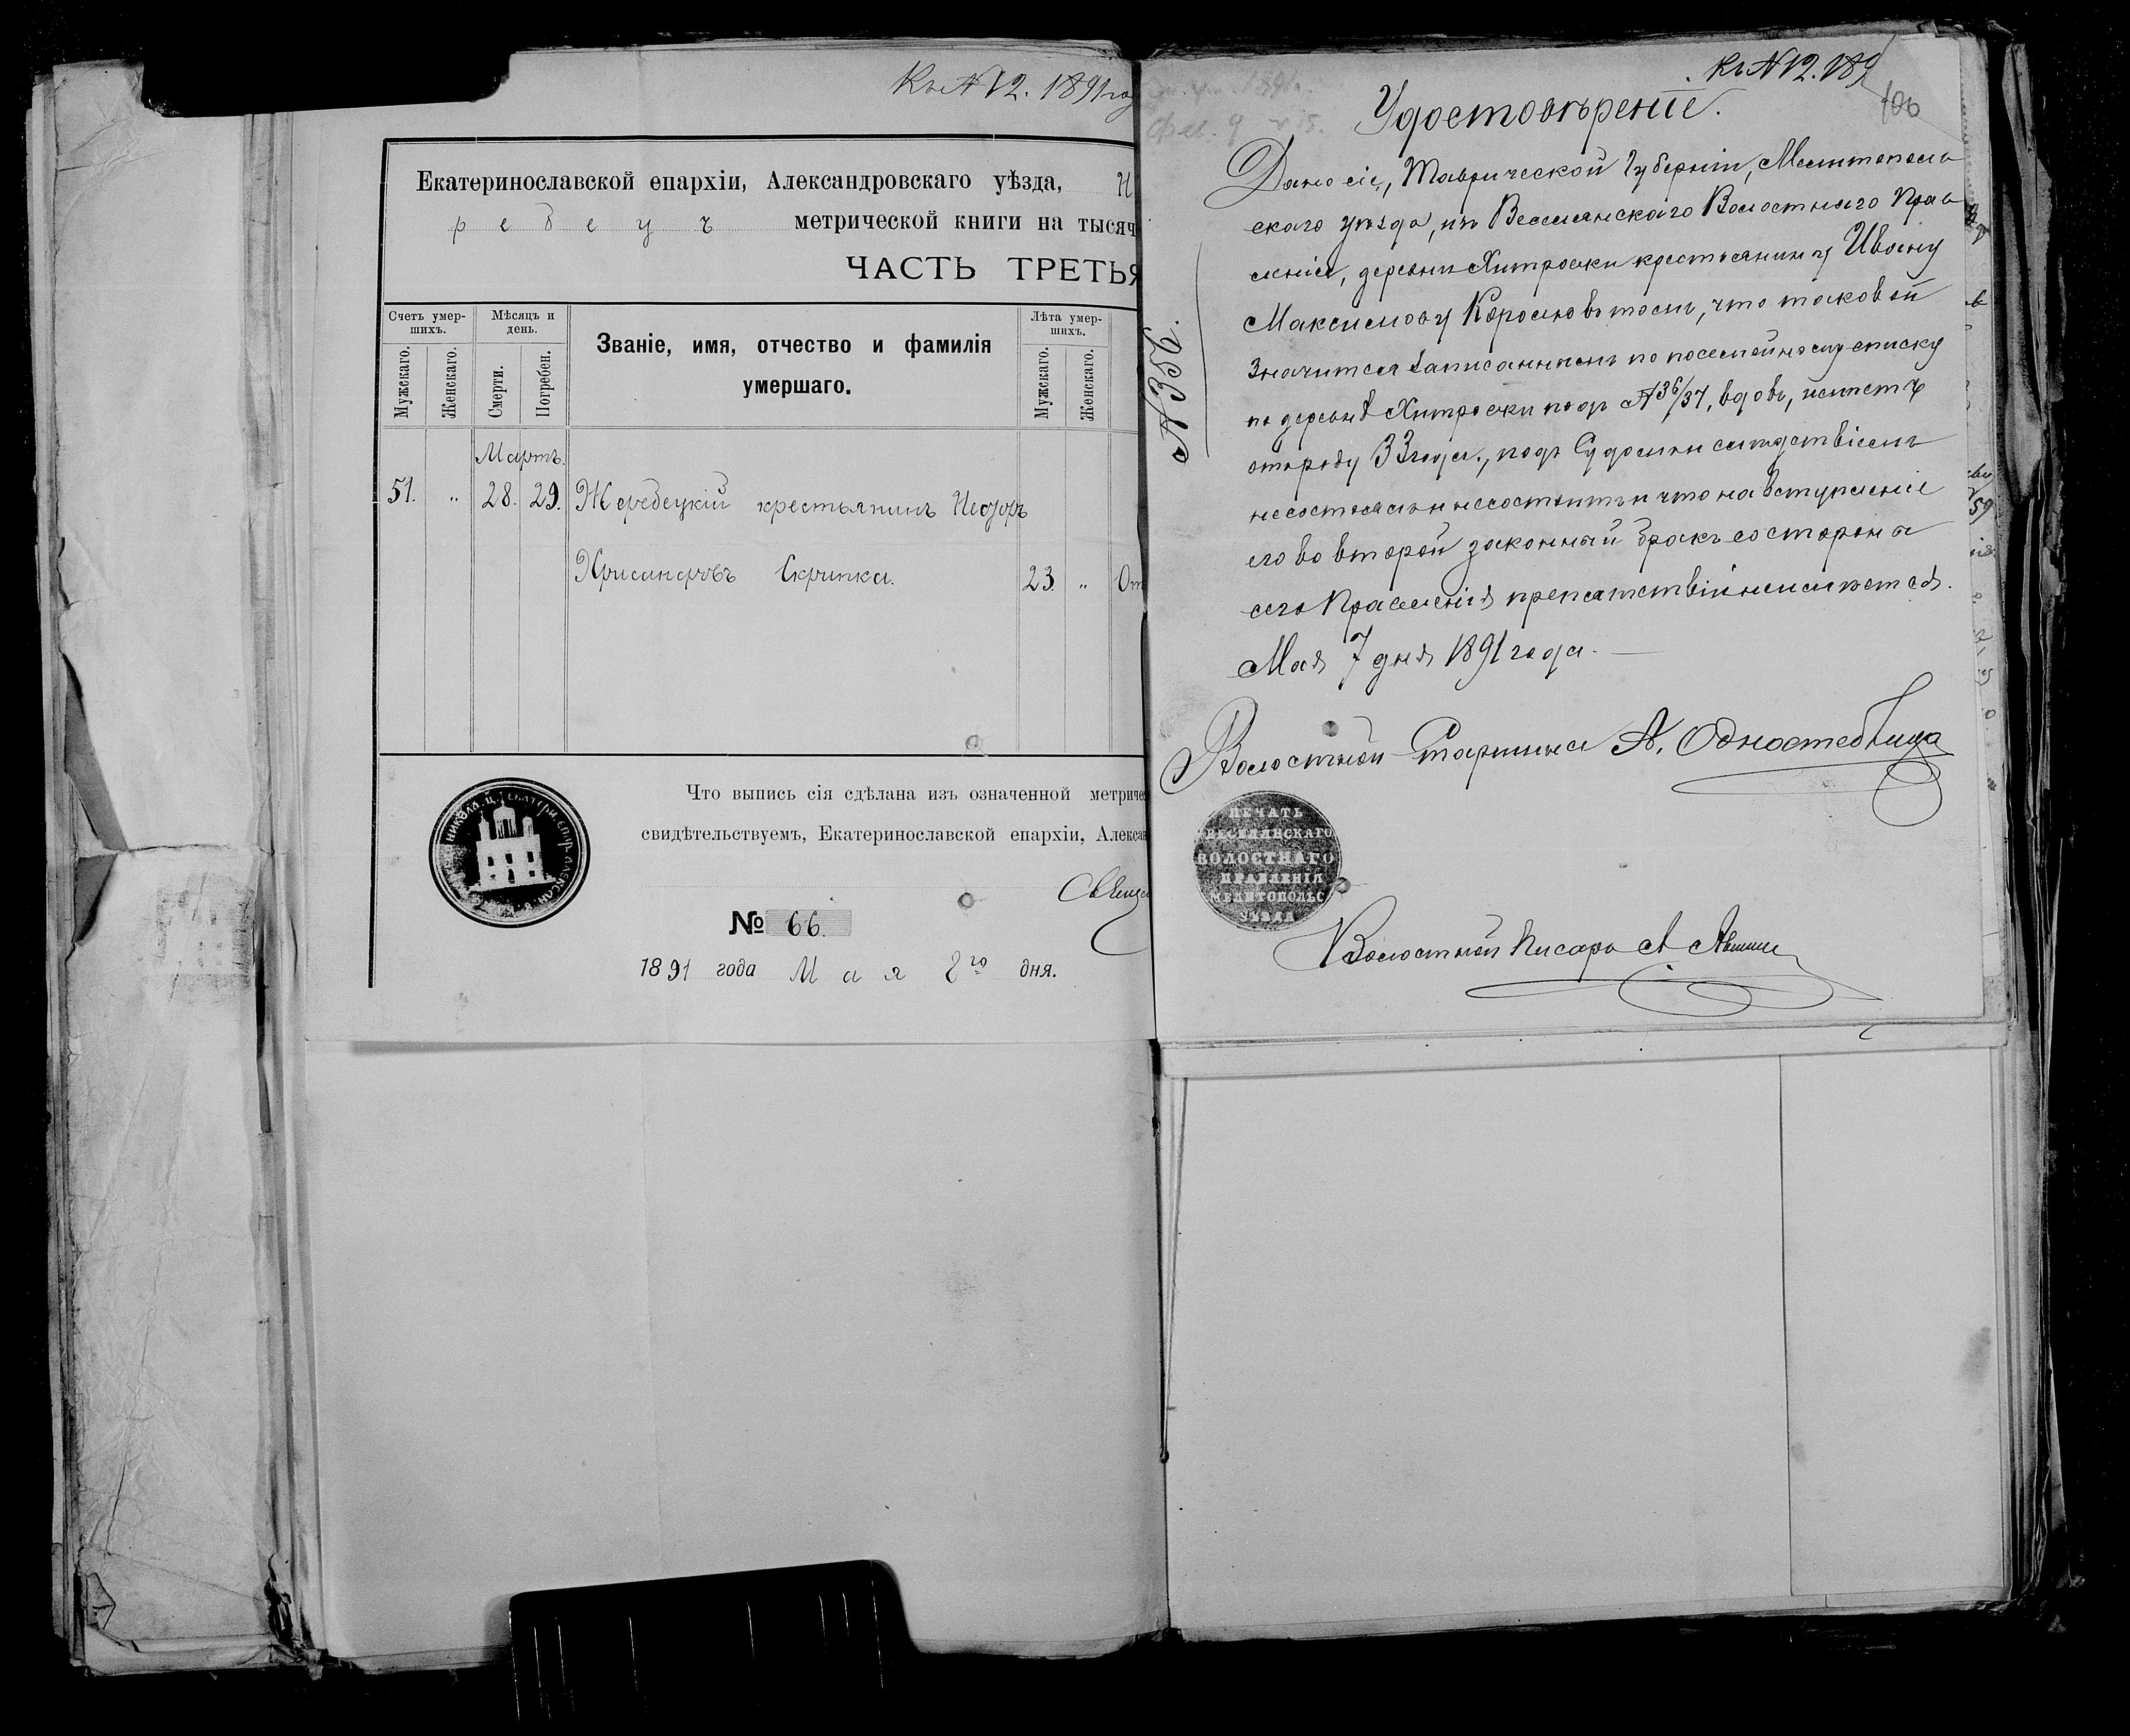 Къ №12. 1891 год
Екатеринославской епархіи, Александровскаго уѣзда, Н
ребецъ метрической книги на тысяч
ЧАСТЬ ТРЕТЬЯ
Счетъ умер-
шихъ.
Мужскаго.
Женскаго.
Мѣсяцъ и
день.
Смерти.
Погребен.
Званіе, имя, отчество и фамилія
умершаго.
Лѣта умер-
шихъ.
Мужскаго.
Женскаго.
Мартъ.
51. „ 28. 29. Жеребецкій крестьянинъ Исидоръ
Хрисанфовъ Скрипка. 23. „ От
Что выпись сія сдѣлана изъ означенной метриче
свидѣтельствуемъ, Екатеринославской епархіи, Алексан
Священ
№ 66.
1891 года Мая 8го дня.
Къ №12. 189
106
Удостовѣреніе.
№ 539.
Дано сіе, Таврической Губерніи, Мелитополь
скаго уѣзда, изъ Веселянскаго Волостнаго Прав
ленія, деревни Хитровки крестьянину Ивану
Максимову въ томъ, что таковой
значится записаннымъ по посемейному списку
по деревнѣ Хитровки подъ №36/37, вдовъ, имѣетъ
отъ роду 33 года., подъ Судомъ и слѣдствіемъ
несостоялъ и несоститъ и что на вступленіе
его во второй законный бракъ со стороны
сего Правленія препятствій неимѣется.
Мая 7 дня 1891 года.
Волостной Старшина
ПЕЧАТЬ
ВЕСЕЛЯНСКАГО
ВОЛОСТНАГО
ПРАВЛЕНІЯ
МЕЛИТОПОЛЬС
УѢЗДА
Волостной Писарь А